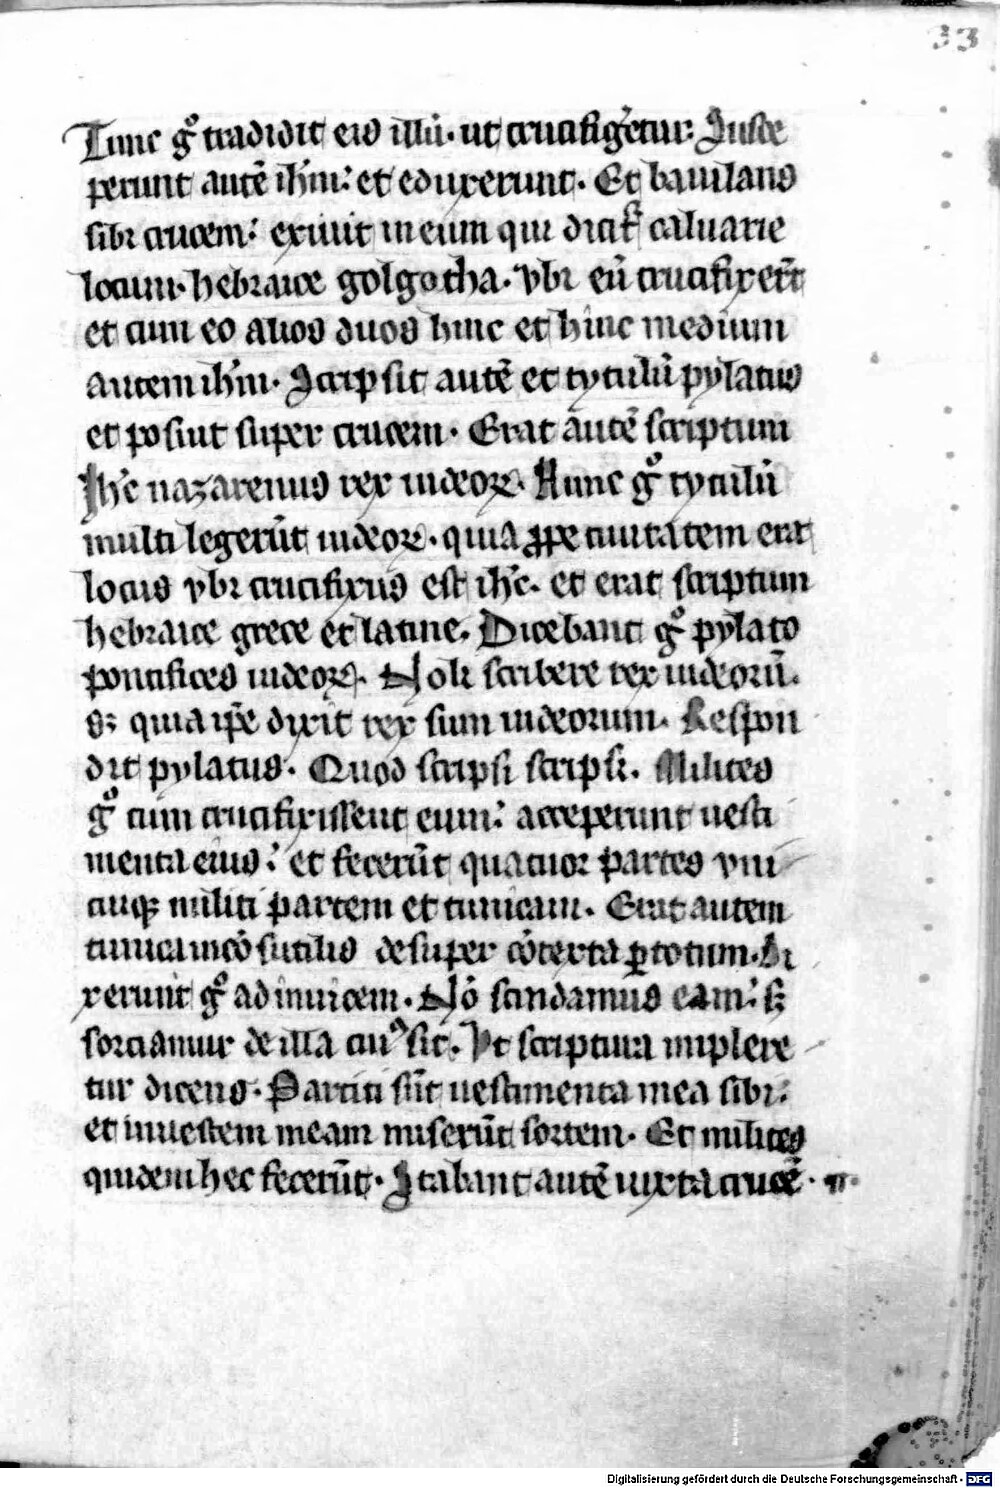 33
Tunc gͦ tradidit eis illū. ut crucifig'etur. Susce
perunt autē ih'm: et eduxerunt. Et baiulans
sibi crucem: exiuit in eum qui dicit͛ caluarie
locum. hebraice golgotha. vbi eū crucifixerūt
et cum eo alios duos hinc et hinc medium
autem ih'm. Scripsit autē et tytulū pylatus
et posuit super crucem. Erat autē scriptum
Ih'c nazarenus rex iudeoꝝ. Hunc gͦ tytulū
multi legerūt iudeoꝝ. quia ꝓpe ciuitatem erat
locus vbi crucifixus est ih'c. et erat scriptum
hebraice grece et latine. Dicebant gͦ pylato
pontifices iudeoꝝ. Noli scribere rex iudeorū.
sꝫ quia ip̄e dixit rex sum iudeorum. Respon
dit pylatus. Quod scripsi scripsi. Milites
gͦ cum crucifixissent eum: acceperunt uesti
menta eius: et fecerūt quatuor partes vni
cuiqꝫ militi partem et tunicam. Erat autem
tunica incōsutilis desuper cōtexta ꝑ totum. Di
xerunt gͦ adinuicem. Nō scindamus eam: sꝫ
sorciamur de illa cuiꝰ sit. Vt scriptura implere
tur dicens. Partiti sūt uestimenta mea sibi:
et in uestem meam miserūt sortem. Et milites
quidem hec fecerūt. Stabant autē iuxta crucē.
Digitalisierung gefördert durch die Deutsche Forschungsgemeinschaft - DFG